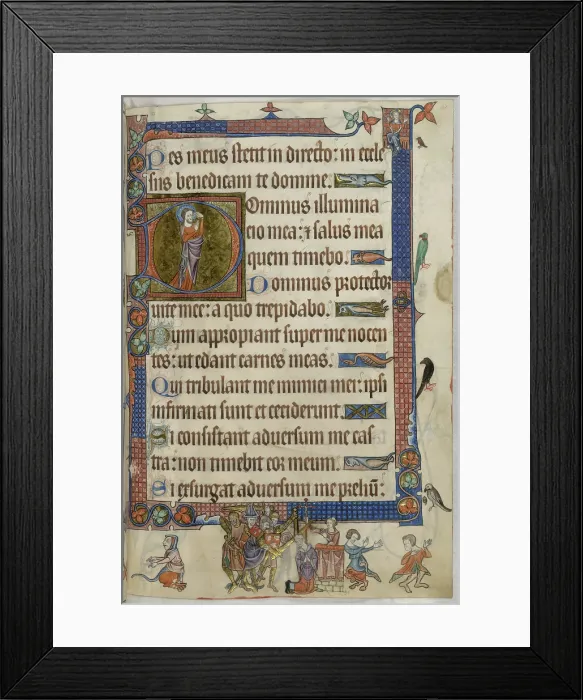 Pes meus stetit in directo: in eccle
siis benedicam te domine.
Dominus illumina
cio mea: ⁊ salus mea
quem timebo.
Dominus protector
uite mee: a quo trepidabo.
Dum appropiant super me nocen
tes: ut edant carnes meas.
Qui tribulant me inimici mei: ipsi
infirmati sunt et ceciderunt.
Si consistant aduersum me cas
tra: non timebit cor meum.
Si exsurgat aduersum me preliū: